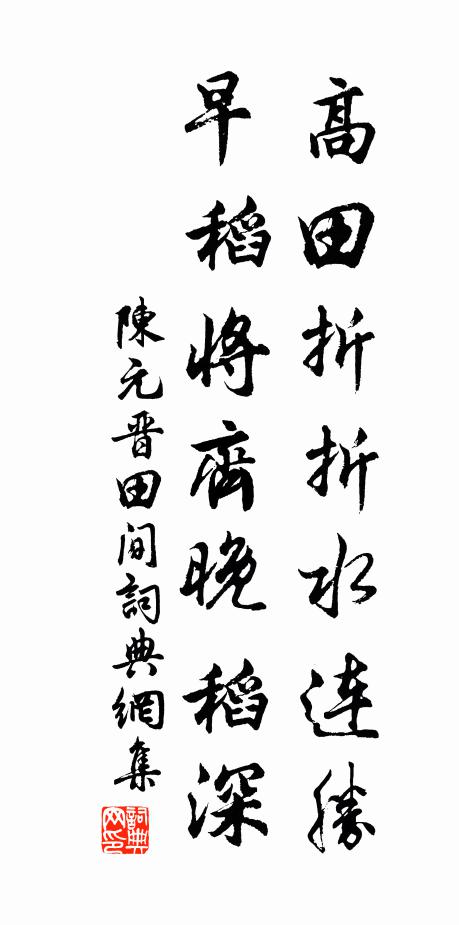 高田折折水連勝
早稻將齊晚稻深
陳元晋田間詞典網集
詞典
网印